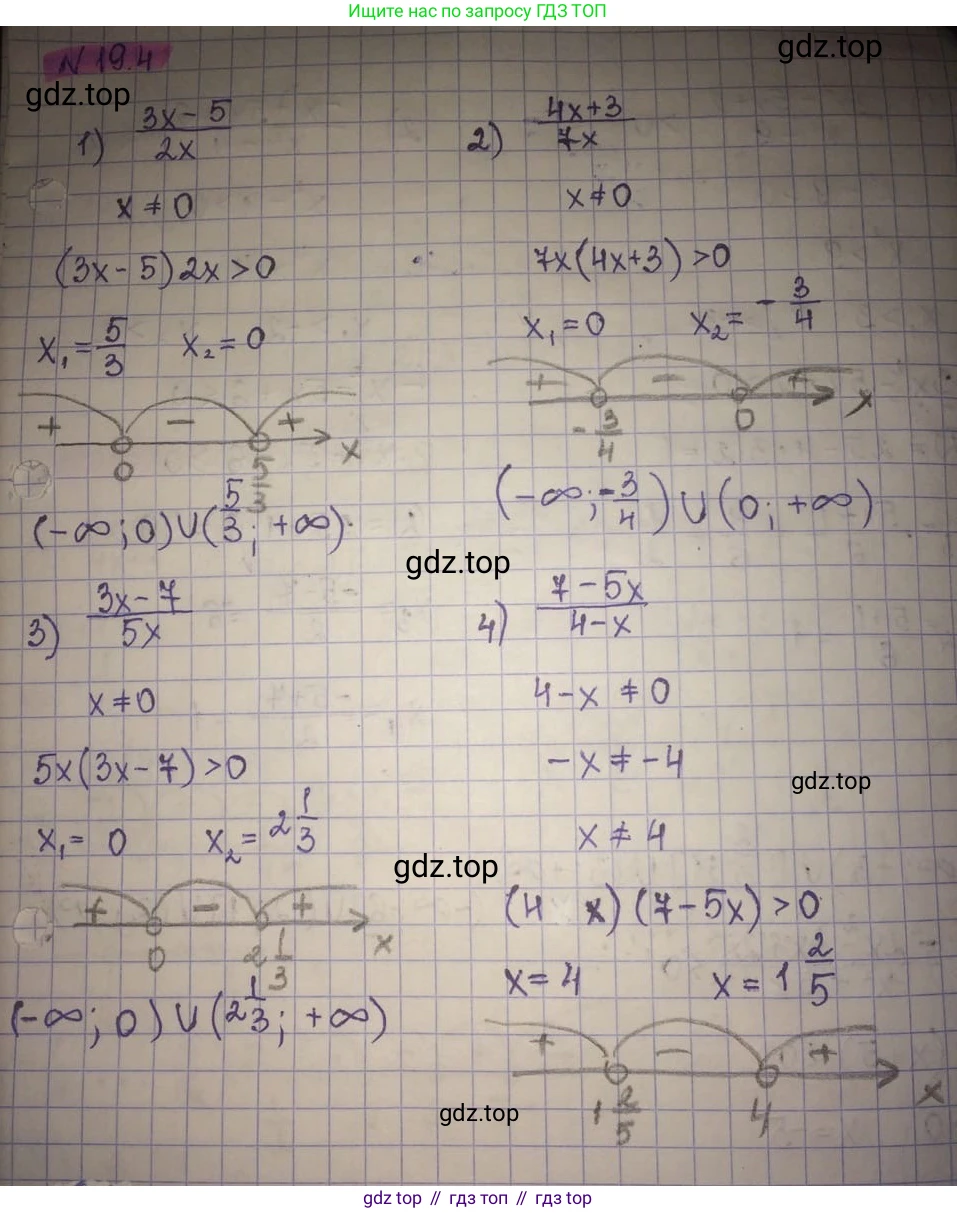 Ищите нас по запросу ГДЗ ТОП
N 19.4
gdz.top
gdz.top
1) (3x - 5)/(2x)
x ≠ 0
(3x - 5) 2x > 0
x₁ = 5/3 x₂ = 0
+ - +
0 5/3 x
(-∞; 0) ∪ (5/3; +∞)
2) (4x+3)/(7x)
x ≠ 0
7x(4x+3) > 0
x₁ = 0 x₂ = - 3/4
+ - +
- 3/4 0 x
(-∞; - 3/4) ∪ (0; +∞)
gdz.top
3) (3x - 7)/(5x)
x ≠ 0
5x(3x - 7) > 0
x₁ = 0 x₂ = 2 1/3
+ - +
0 2 1/3 x
(-∞; 0) ∪ (2 1/3; +∞)
4) (7 - 5x)/(4 - x)
4 - x ≠ 0
- x ≠ - 4
gdz.top
x ≠ 4
gdz.top
(4 x) (7 - 5x) > 0
x = 4 x = 1 2/5
+ - +
1 2/5 4 x
gdz.top
gdz top // гдз топ // gdz top